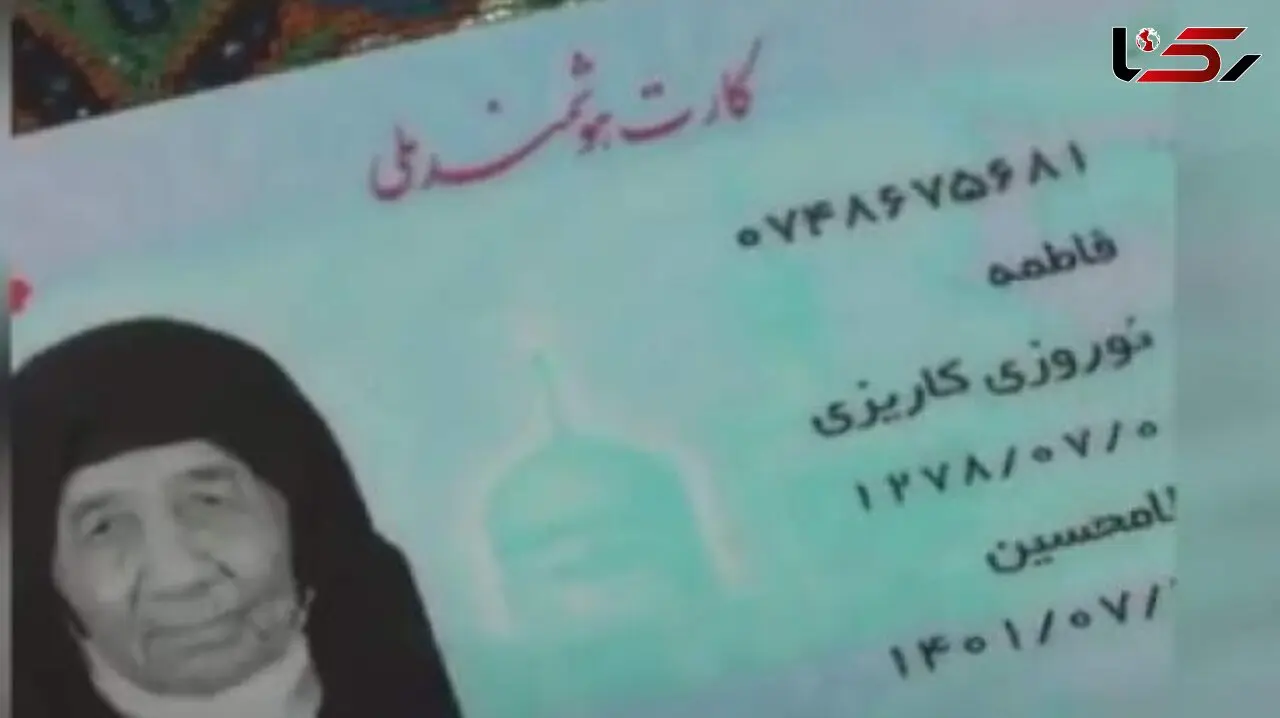 رکنا
کارت هوشمند ملی
۰۷۴۸۶۷۵۶۸۱
فاطمه
نوروزی کاریزی
۱۲۷۸/۰۷/۰
لامحسین
۱۴۰۱/۰۷/